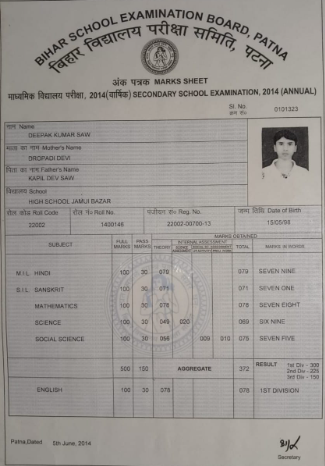 BIHAR SCHOOL EXAMINATION BOARD, PATNA
बिहार विद्यालय परीक्षा समिति, पटना
अंक पत्रक MARKS SHEET
माध्यमिक विद्यालय परीक्षा, 2014(वार्षिक) SECONDARY SCHOOL EXAMINATION, 2014 (ANNUAL)
Sl. No. 0101323
क्रम सं०
नाम Name
DEEPAK KUMAR SAW
माता का नाम Mother's Name
DROPADI DEVI
पिता का नाम Father's Name
KAPIL DEV SAW
विद्यालय School
HIGH SCHOOL JAMUI BAZAR
रोल कोड Roll Code रोल नं० Roll No. पंजीयन सं० Reg. No. जन्म तिथि Date of Birth
22002 1400146 22002-00790-13 15/05/98
MARKS OBTAINED
SUBJECT FULL MARKS PASS MARKS THEORY INTERNAL ASSESSMENT TOTAL MARKS IN WORDS
M.I.L. HINDI 100 30 079 079 SEVEN NINE
S.I.L. SANSKRIT 100 30 071 071 SEVEN ONE
MATHEMATICS 100 30 078 078 SEVEN EIGHT
SCIENCE 100 30 049 020 069 SIX NINE
SOCIAL SCIENCE 100 30 009 075 SEVEN FIVE
500 150 AGGREGATE 372 RESULT 1st Div - 300
2nd Div - 225
3rd Div - 150
ENGLISH 100 30 078 078 1ST DIVISION
Patna,Dated 5th June, 2014
Secretary